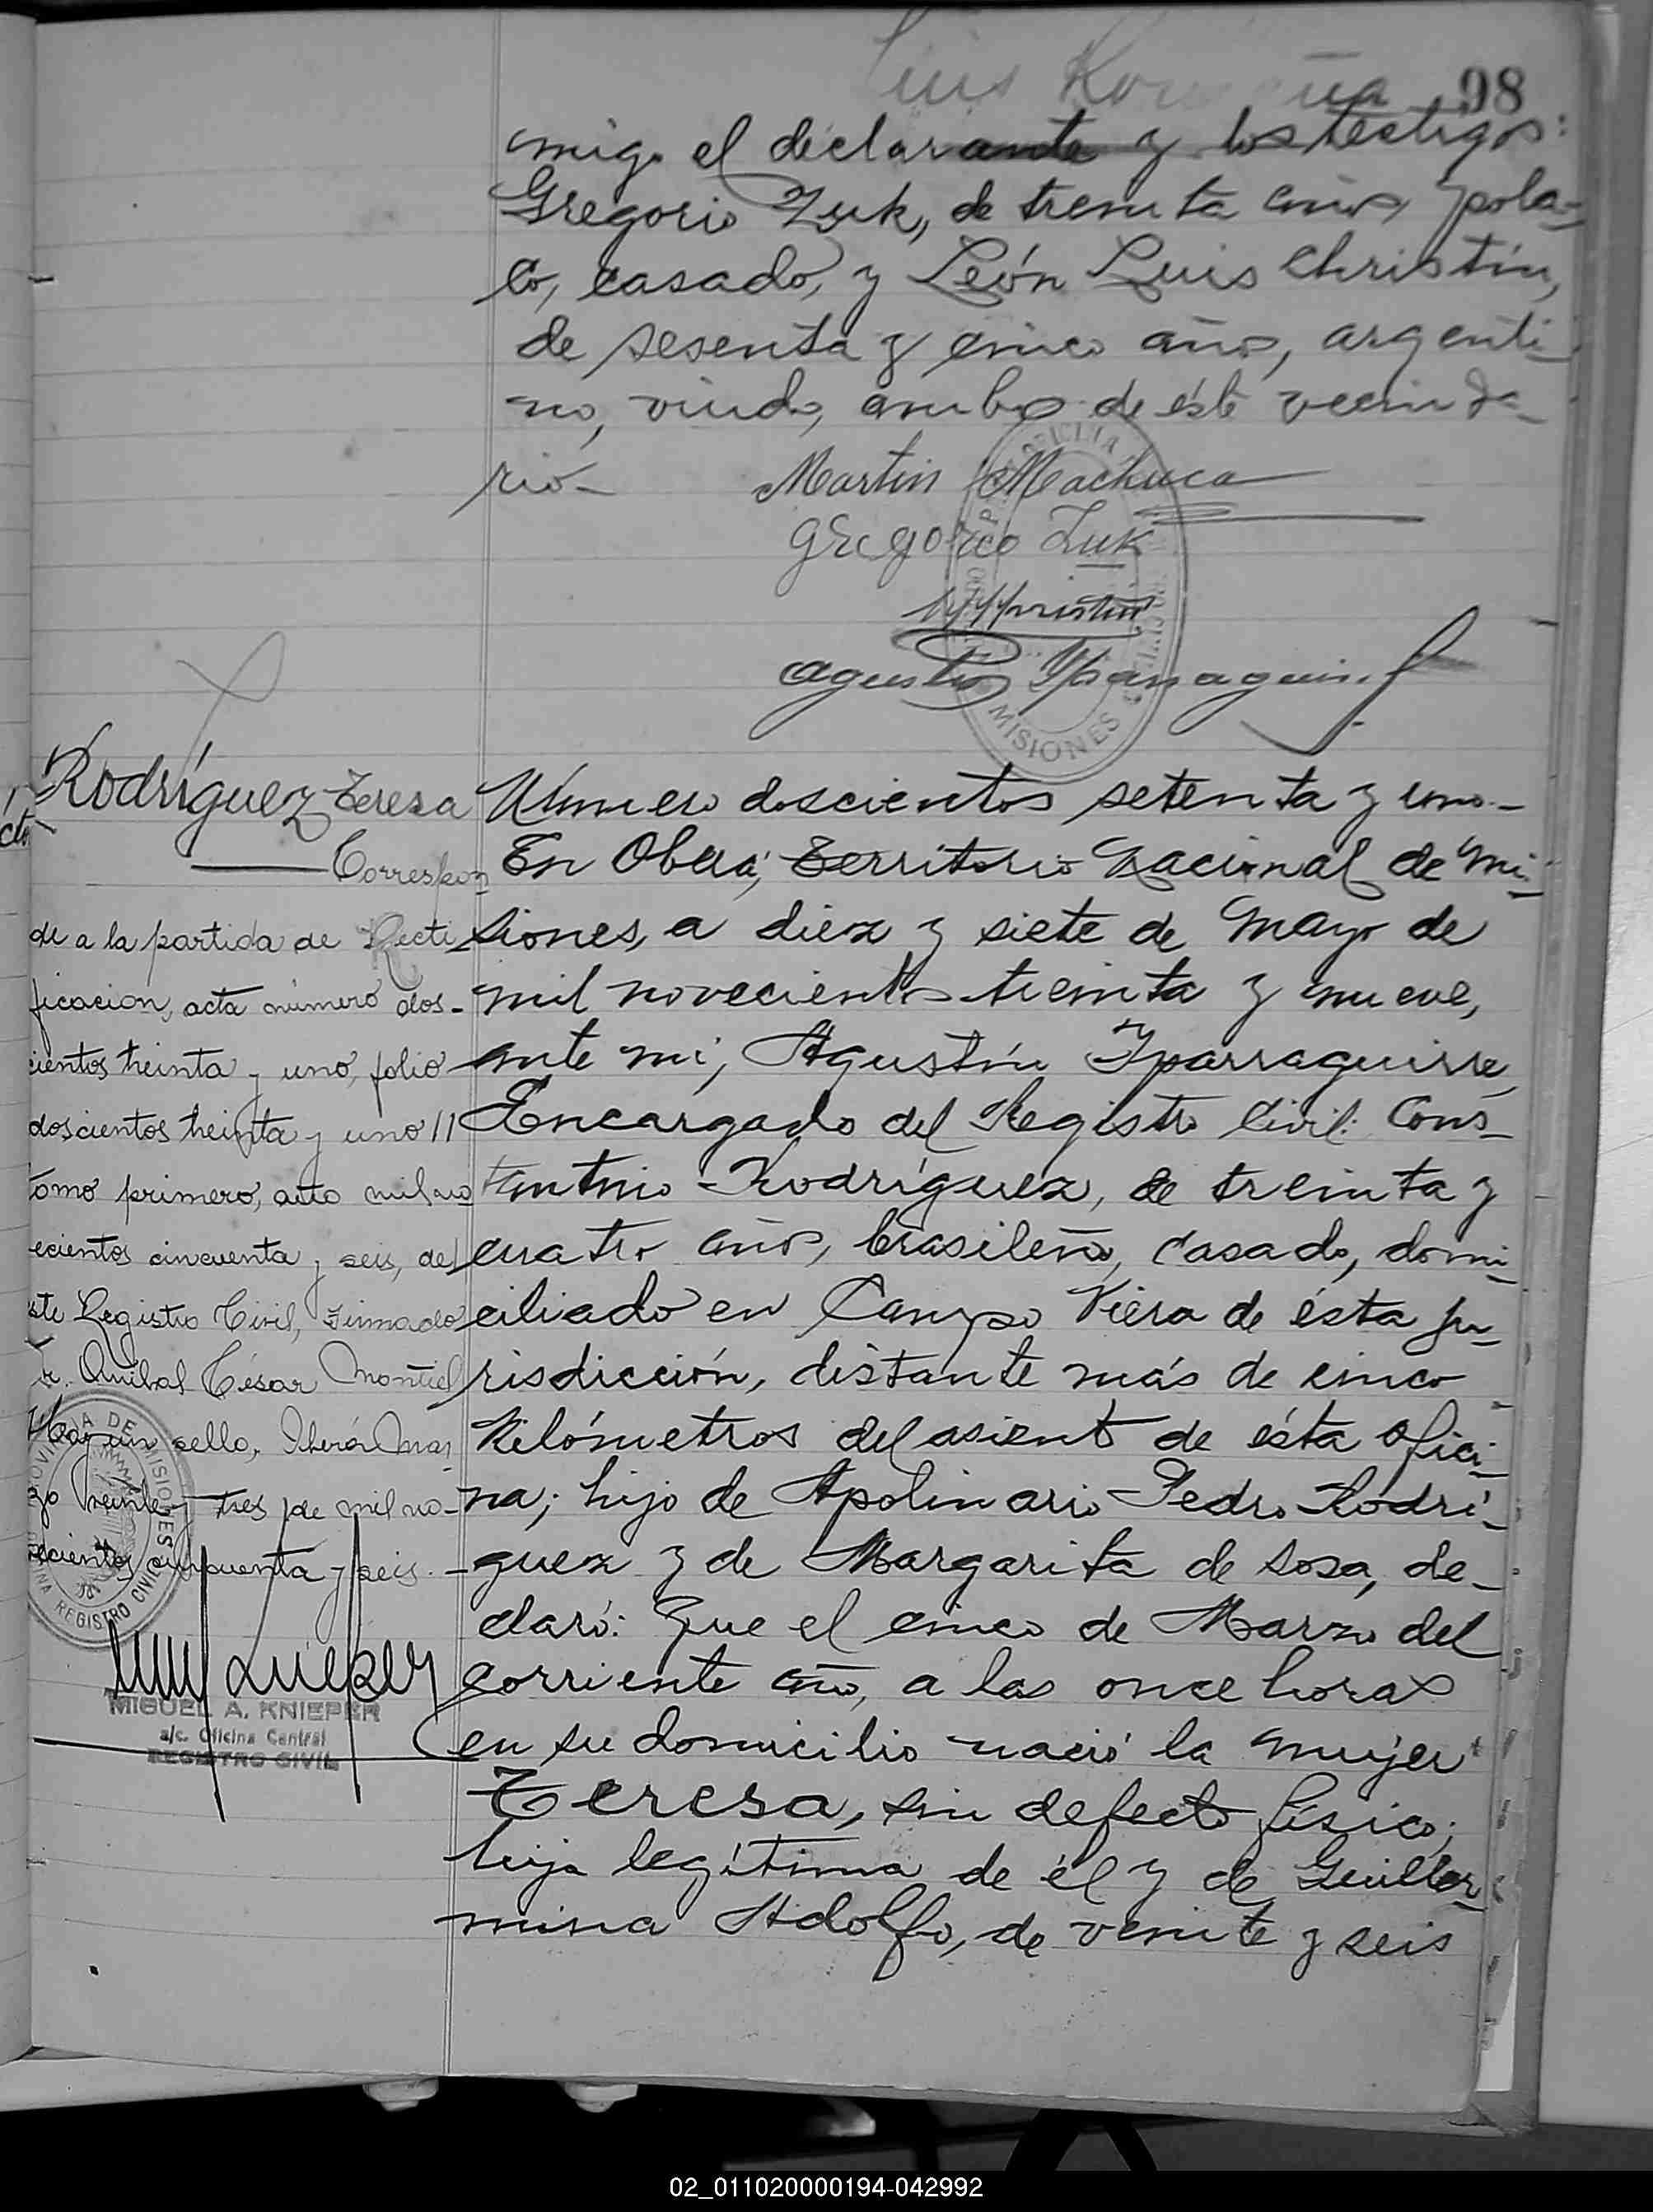 Luis
98
migo el declarante y los testigos:
Gregorio Zuk, de treinta años, pola-
co, casado, y León Luis Christín,
de sesenta y cinco años, argenti-
no, viudo, ambos de éste vecinda-
rio-
Martin Machuca
gregorio Zuk
Agustín Yparraguirre
MISIONES
Rodríguez Teresa
Correspon
de a la partida de Recti
ficación, acta número dos-
cientos treinta y uno, folio
doscientos treinta y uno //
tomo primero, año mil no
vecientos cincuenta y seis, de
este Registro Civil, Firmado
Anibal César Montiel
Hay un sello, Oberá Mar
zo veinte y tres de mil no-
vecientos cincuenta y seis.-
PROVINCIA DE MISIONES
OFICINA REGISTRO CIVIL
MIGUEL A. KNIEPER
a/c. Oficina Central
REGISTRO CIVIL
Número doscientos setenta y uno.-
En Oberá, Territorio Nacional de Mi-
siones, a diez y siete de Mayo de
mil novecientos treinta y nueve,
ante mí, Agustín Yparraguirre,
Encargado del Registro Civil: Cons-
tantino Rodríguez, de treinta y
cuatro años, brasileño, casado, domi-
ciliado en Campo Viera de ésta ju-
risdicción, distante más de cinco
Kilómetros del asiento de ésta ofici-
na; hijo de Apolinario Pedro Rodrí-
guez y de Margarita de Sosa, de-
claró: Que el cinco de Marzo del
corriente año, a las once horas
en su domicilio nació la mujer
Teresa, sin defecto físico;
hija legítima de él y de Guiller
mina Adolfo, de veinte y seis
02_011020000194-042992